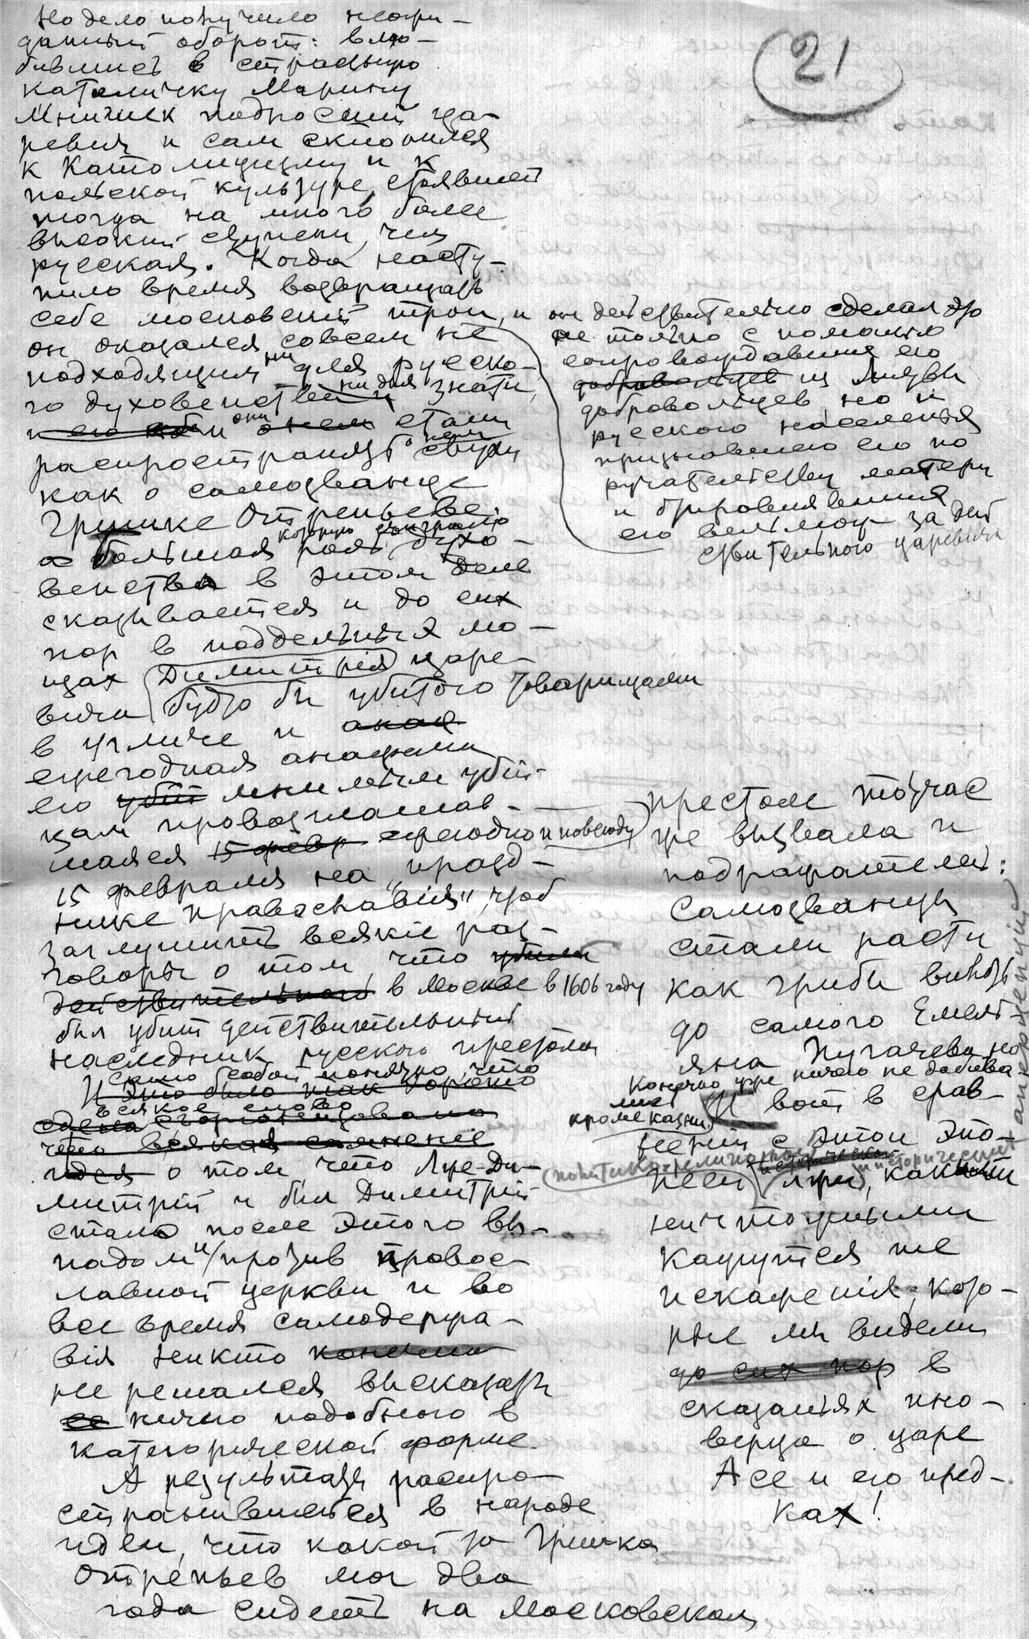 21
Но дело получило неожи-
данный оборот: влю-
бившись в страстную
католичку Марину
Мнишек подросший ца-
ревич и сам склонился
к католицизму и к
польской культуре, стоявшей
тогда на много более
высокий ступени, чем
русская. Когда насту-
пило время возвращать
себе московский трон, и
он оказался совсем не
подходящим ни для русско-
го духовенства ни для знати,
и они стали
распространять о нем слухи
как о самозванце
Гришке Отрепьеве.
Большая роль, которую сыграло духо-
венства в этом деле
сказывается и до сих
пор в поддельных мо-
щах Димитрія царе-
вича будто бы убитого товарищами
в Угличе и
ежегодная анафема
его убий мнимым убий-
цам провозглашав-
шаяся 15 февр ежегодно и повсюду
15 февраля на празд-
нике "православія", чтоб
заглушить всякіе раз-
говоры о том, что
действительного в Москве в 1606 году
был убит действительный
наследник русского престола
само собой понятно, что
И это было так хорошо
всякое слово
что всякая сомнение
о том что Лже-Ди-
митрий и был Димитрий
стало после этого вы-
падом и против правос-
лавной церкви и во
все время самодержа-
вія никто
не решался высказать
ничего подобного в
категорической форме.
А результаты распро-
странившейся в народе
идеи, что какой то Гришка
Отрепьев мог два
года сидеть на Московском
он действительно сделал это
не только с помощью
сопровождавших его
добровольцев из Литвы
добровольцев, но и
русского населения
признавшего его по
ручательству матери
его вельмож за дей
ствительного царевича
престоле тотчас
же вызвала и
подражателей:
самозванцы
стали расти
как грибы вплоть
до самого Емель
яна Пугачева, но
конечно уже ничего не добива
лись
кроме казни
И вот в срав-
нении с этой эпо-
пеей
лжи, какими
ничтожными
кажутся те
искажения, кото-
рые мы видели
до сих пор в
сказаньях ино-
верца о царе
Асе и его пред-
ках!